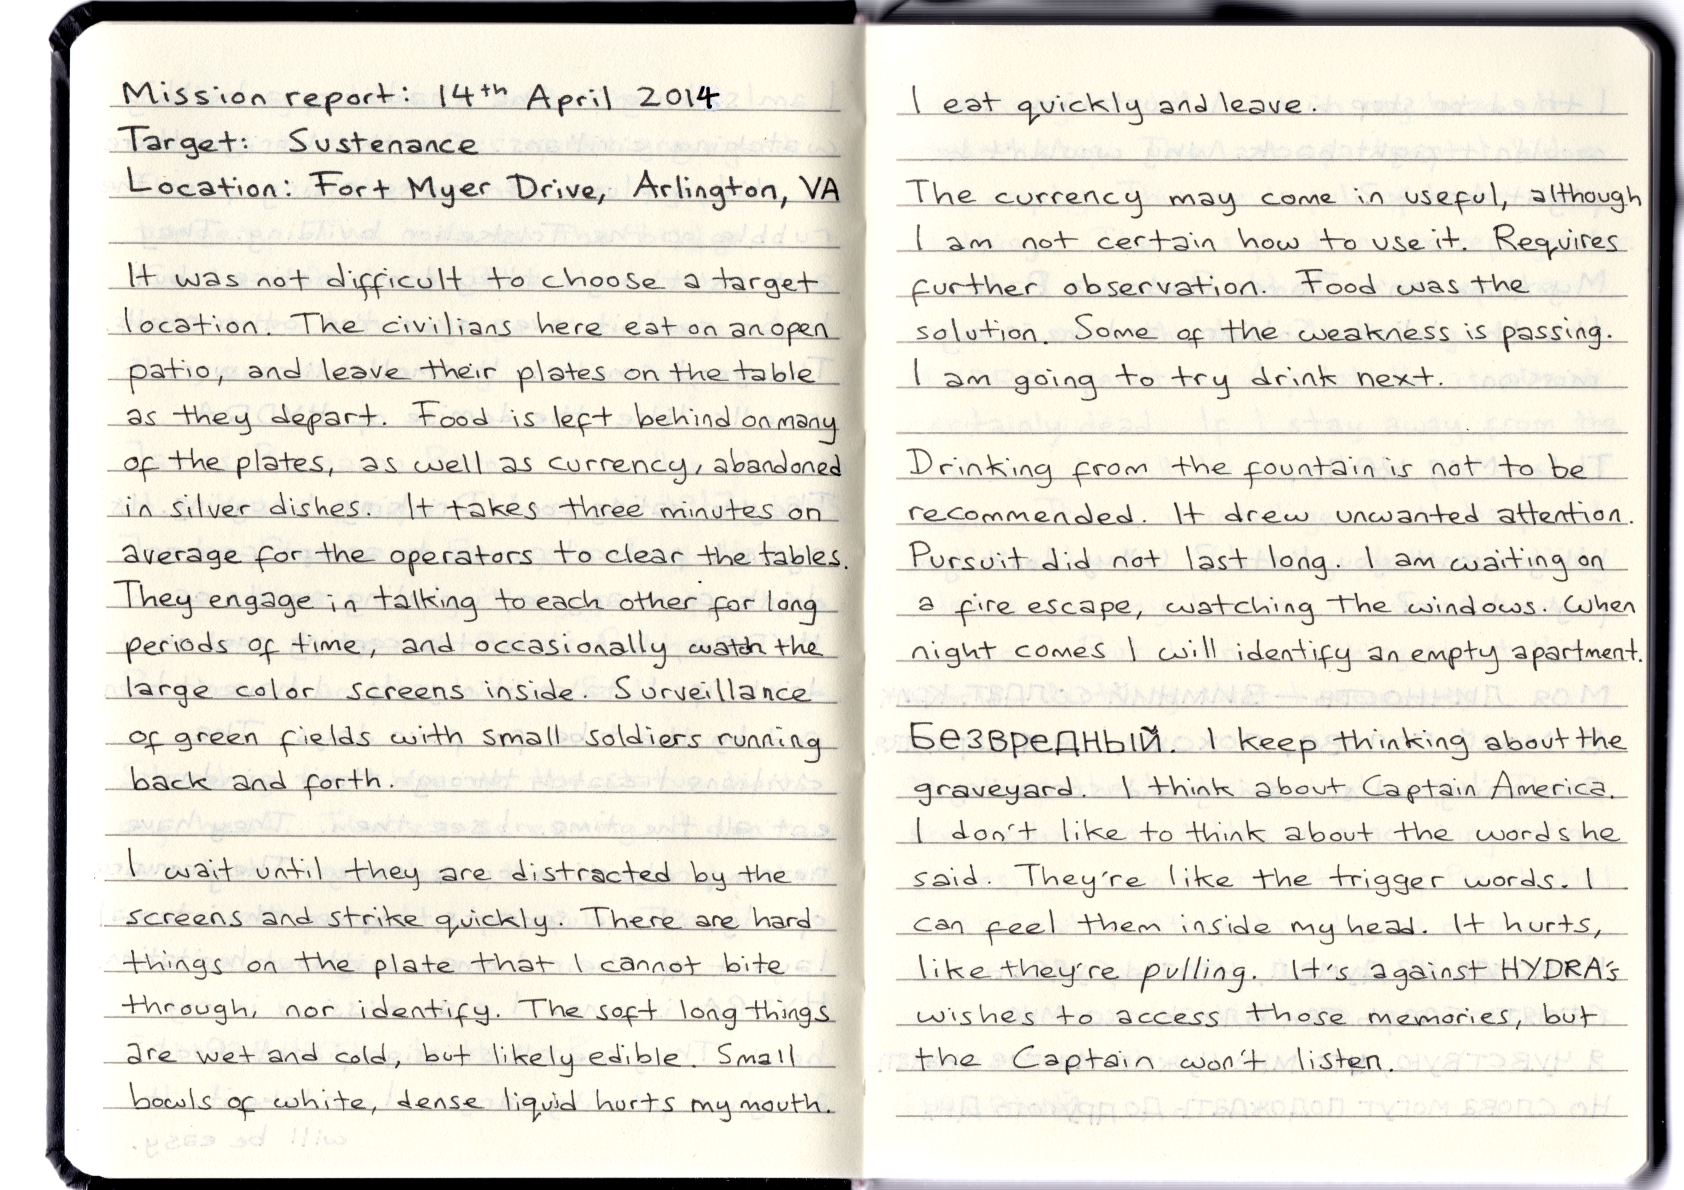 Mission report: 14th April 2014
Target: Sustenance
Location: Fort Myer Drive, Arlington, VA
It was not difficult to choose a target
location. The civilians here eat on an open
patio, and leave their plates on the table
as they depart. Food is left behind on many
of the plates, as well as currency, abandoned
in silver dishes. It takes three minutes on
average for the operators to clear the tables.
They engage in talking to each other for long
periods of time, and occasionally watch the
large color screens inside. Surveillance
of green fields with small soldiers running
back and forth.
I wait until they are distracted by the
screens and strike quickly. There are hard
things on the plate that I cannot bite
through, nor identify. The soft long things
are wet and cold, but likely edible. Small
bowls of white, dense liquid hurts my mouth.
I eat quickly and leave.
The currency may come in useful, although
I am not certain how to use it. Requires
further observation. Food was the
solution. Some of the weakness is passing.
I am going to try drink next.
Drinking from the fountain is not to be
recommended. It drew unwanted attention.
Pursuit did not last long. I am waiting on
a fire escape, watching the windows. When
night comes I will identify an empty apartment.
Безвредный. I keep thinking about the
graveyard. I think about Captain America.
I don't like to think about the words he
said. They're like the trigger words. I
can feel them inside my head. It hurts,
like they're pulling. It's against HYDRA's
wishes to access those memories, but
the Captain won't listen.